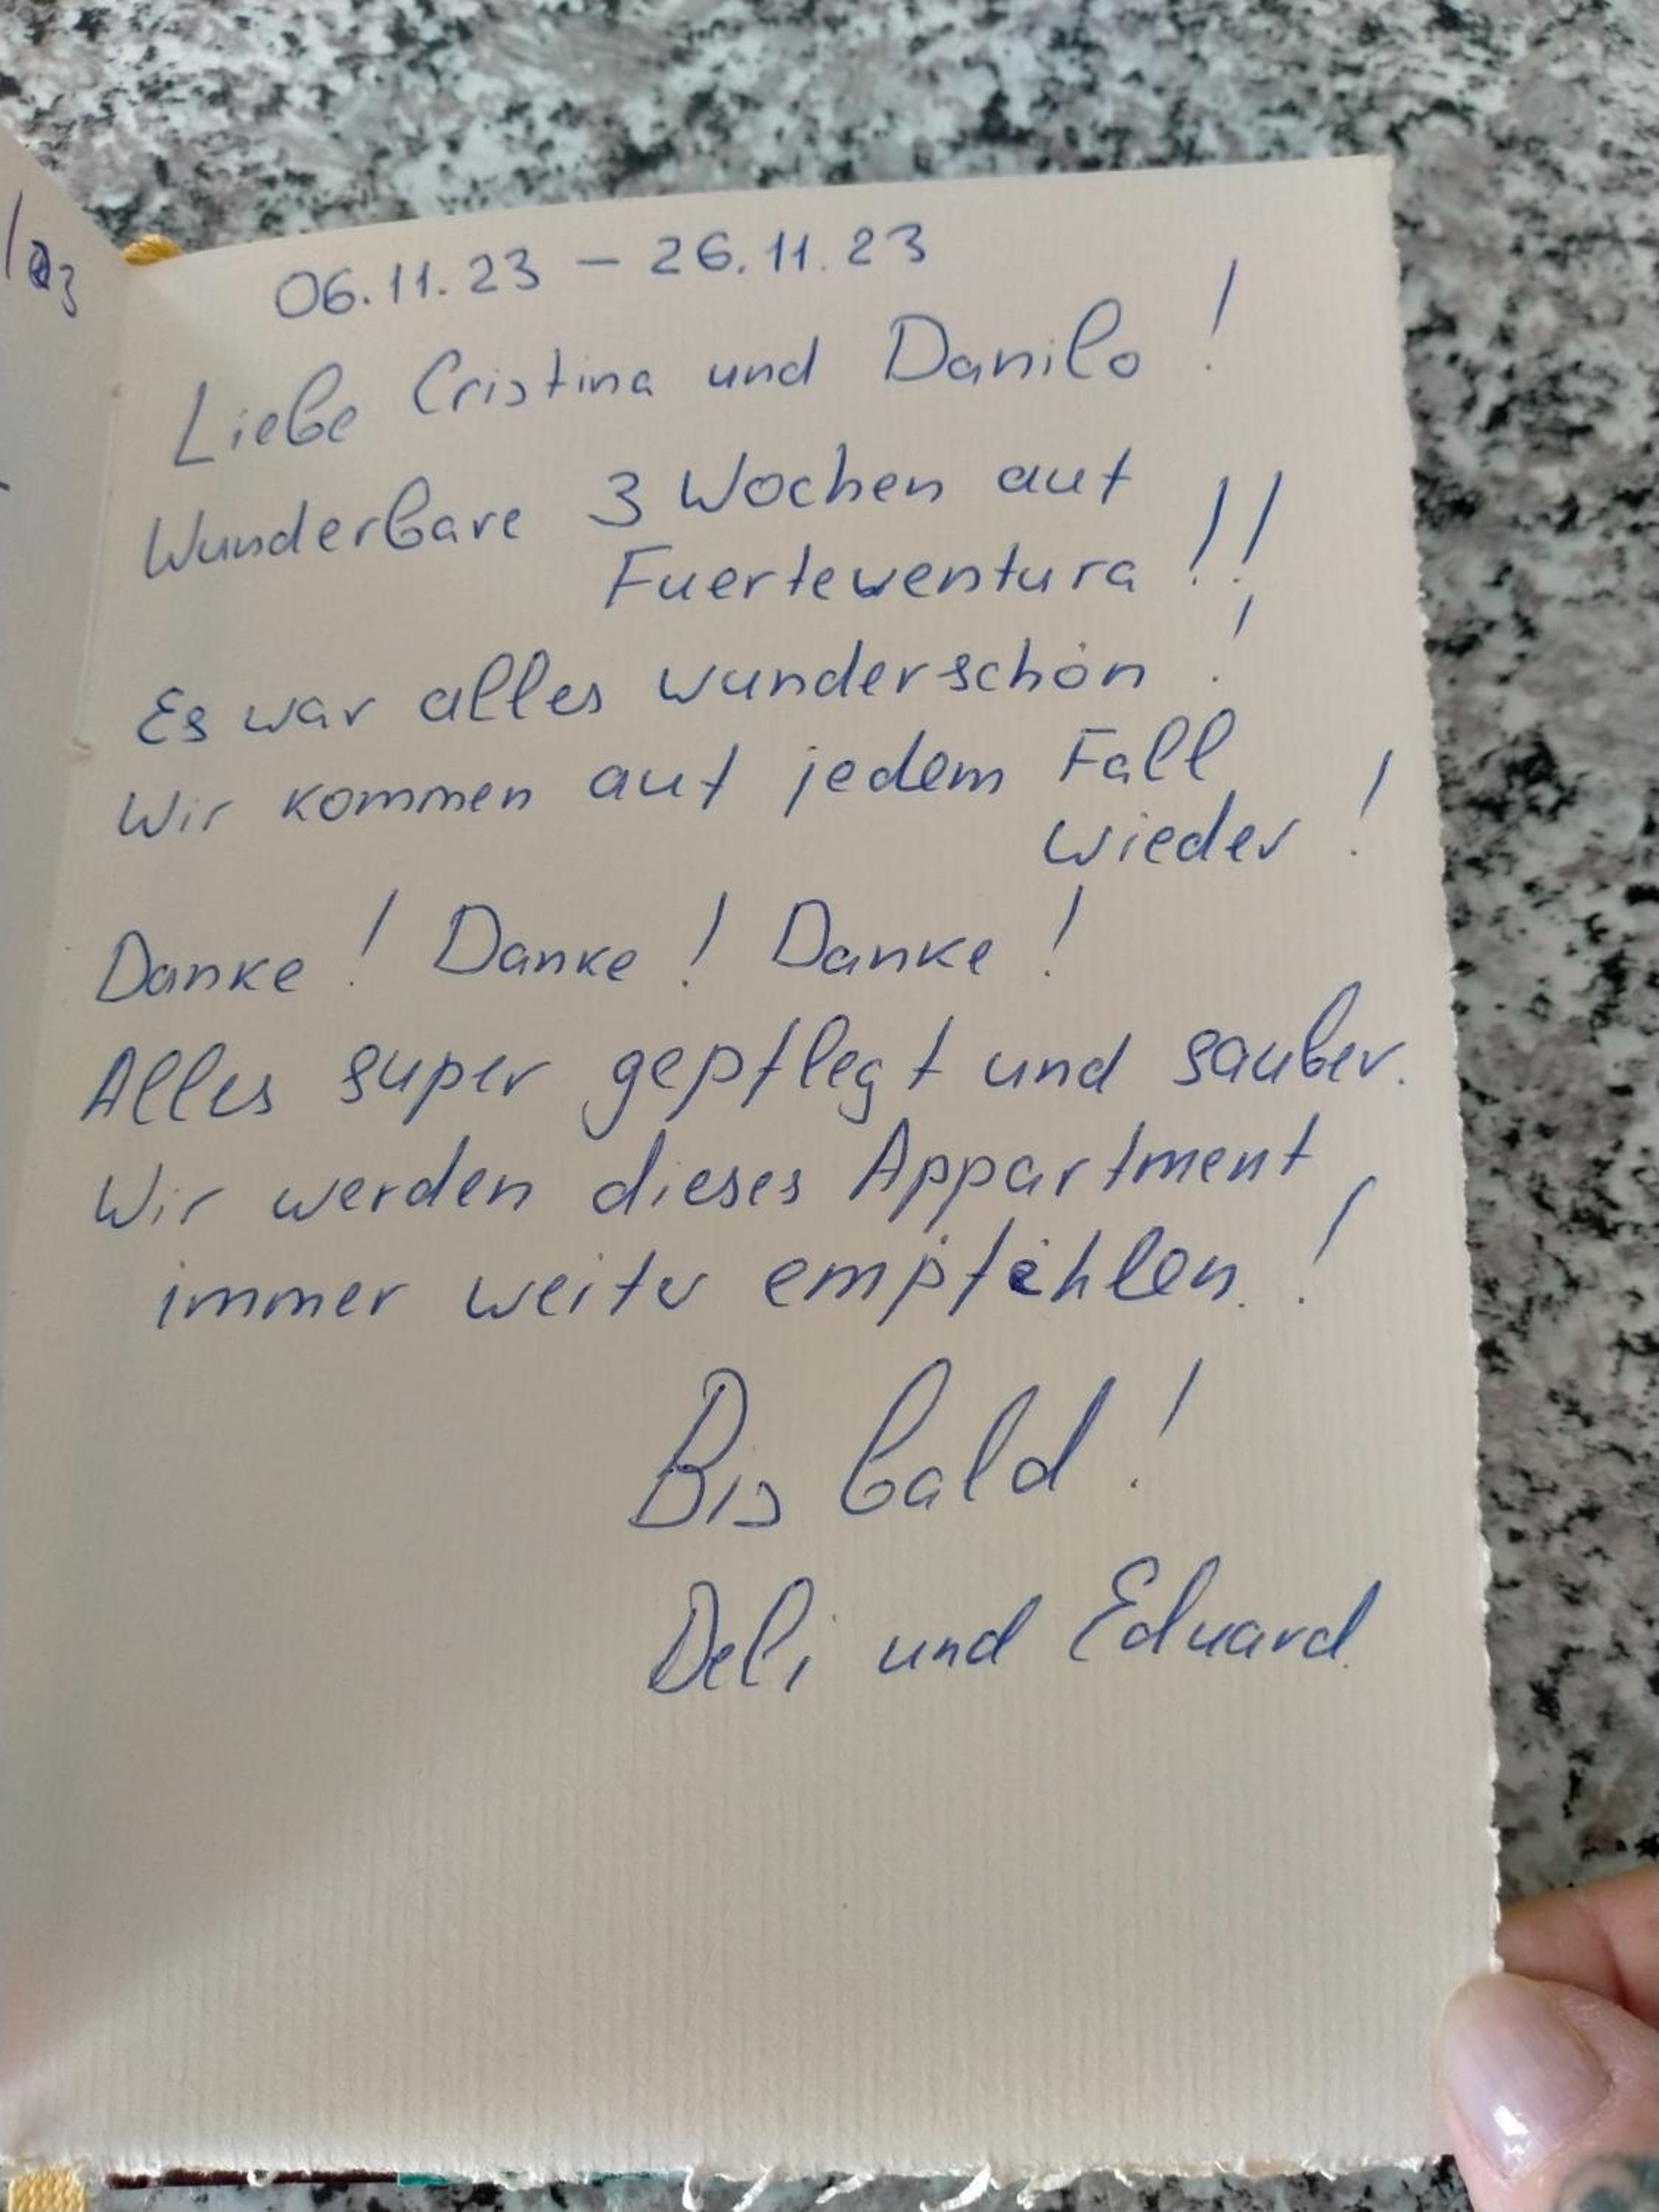 06.11.23 – 26.11.23
Liebe Cristina und Danilo !
Wunderbare 3 Wochen auf
Fuerteventura !!
Es war alles wunderschön !
Wir kommen auf jedem Fall
wieder !
Danke ! Danke ! Danke !
Alles super gepflegt und sauber.
Wir werden dieses Appartment
immer weiter empfehlen. !
Bis bald !
Deli und Eduard